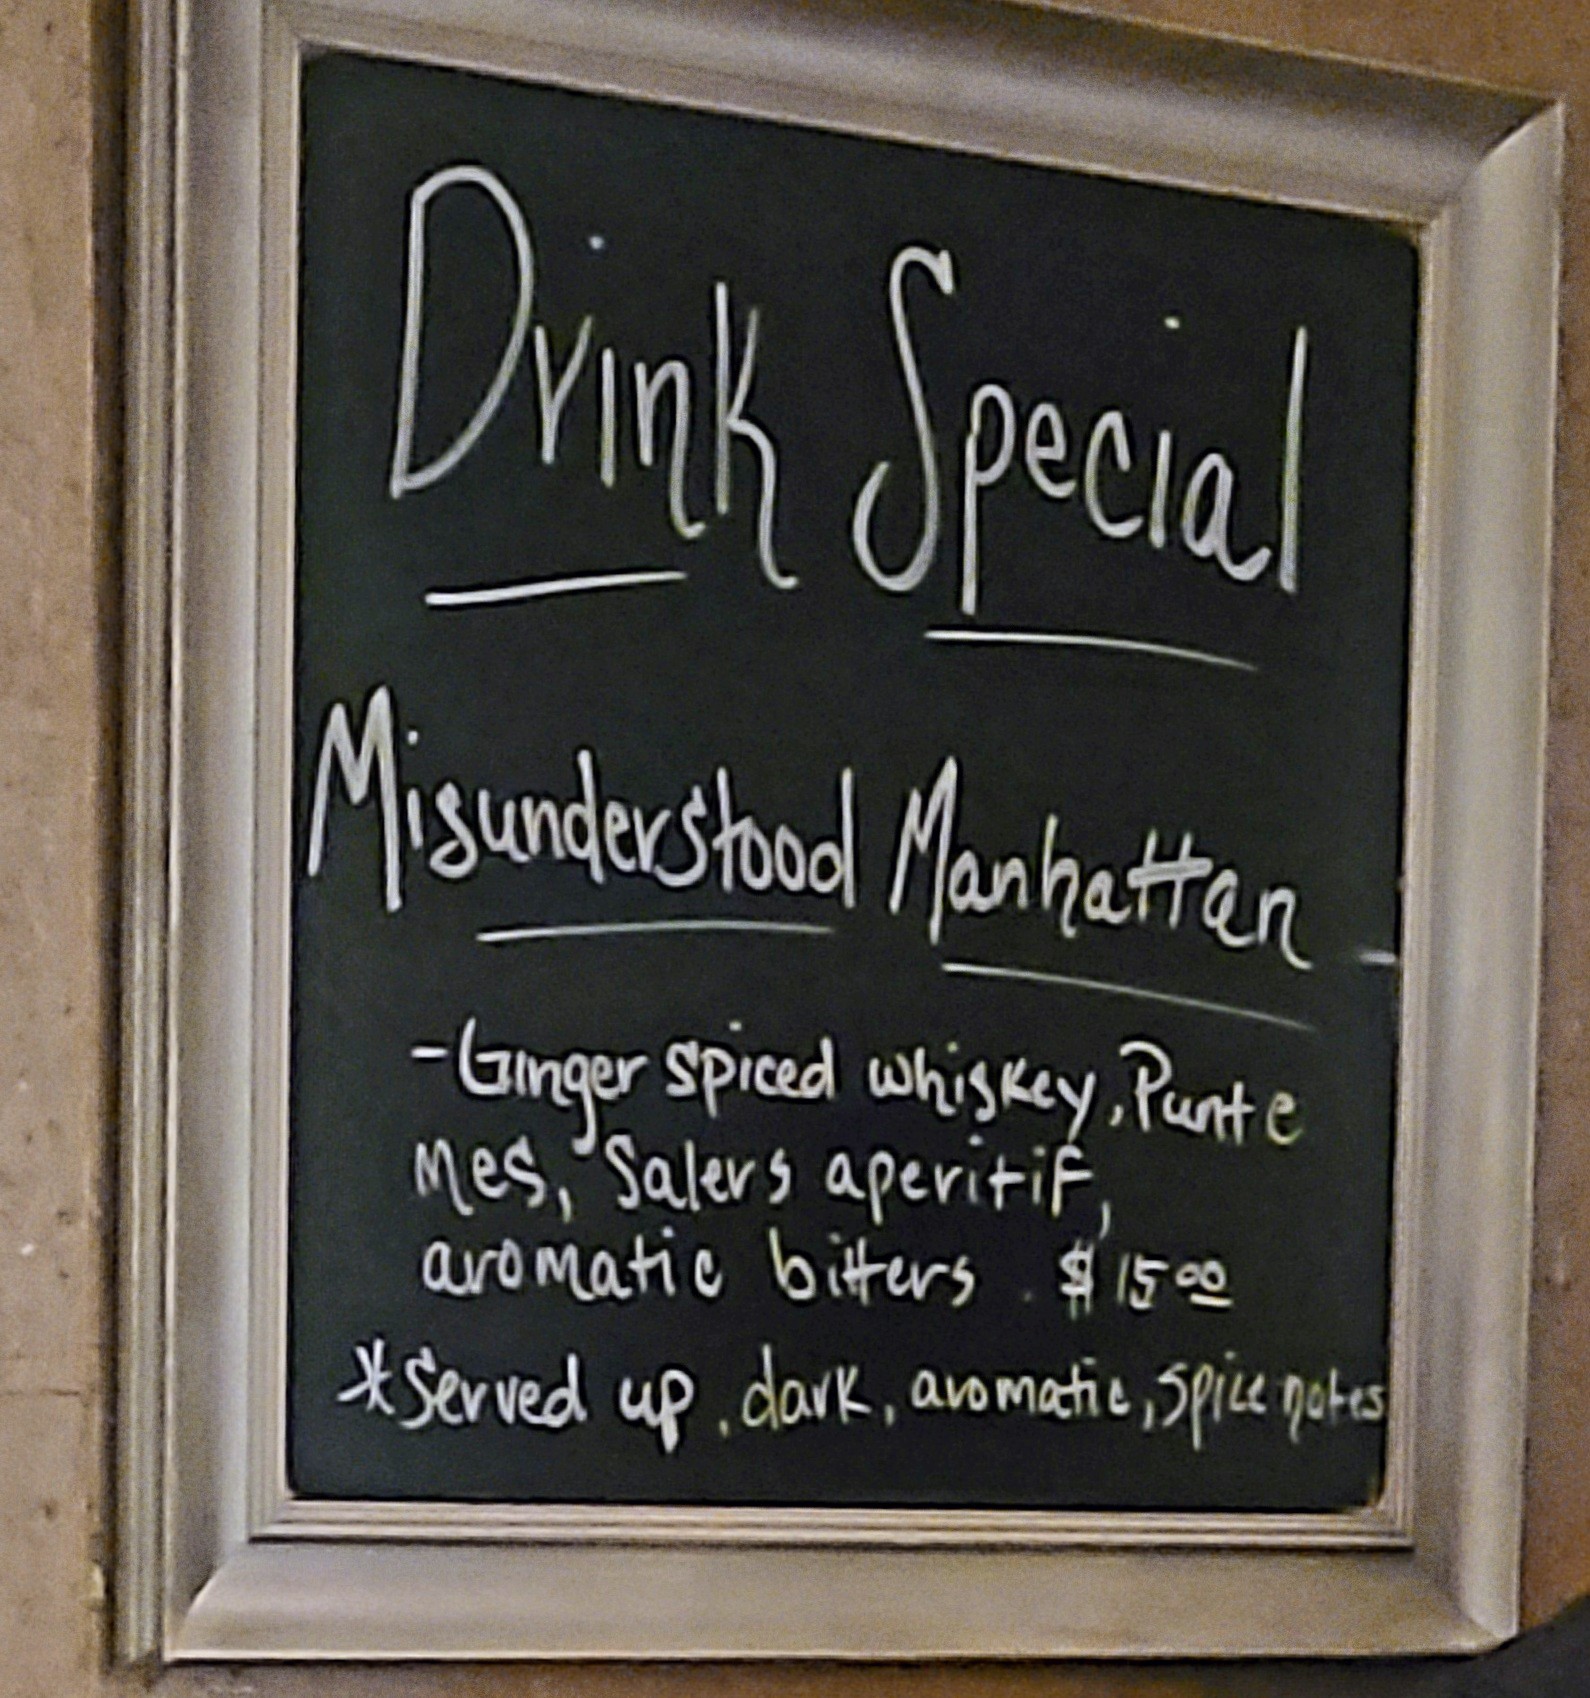 Drink Special
Misunderstood Manhattan
-Ginger spiced whiskey, Punt e
mes, Salers aperitif,
aromatic bitters. $15.00
*Served up, dark, aromatic, spice notes